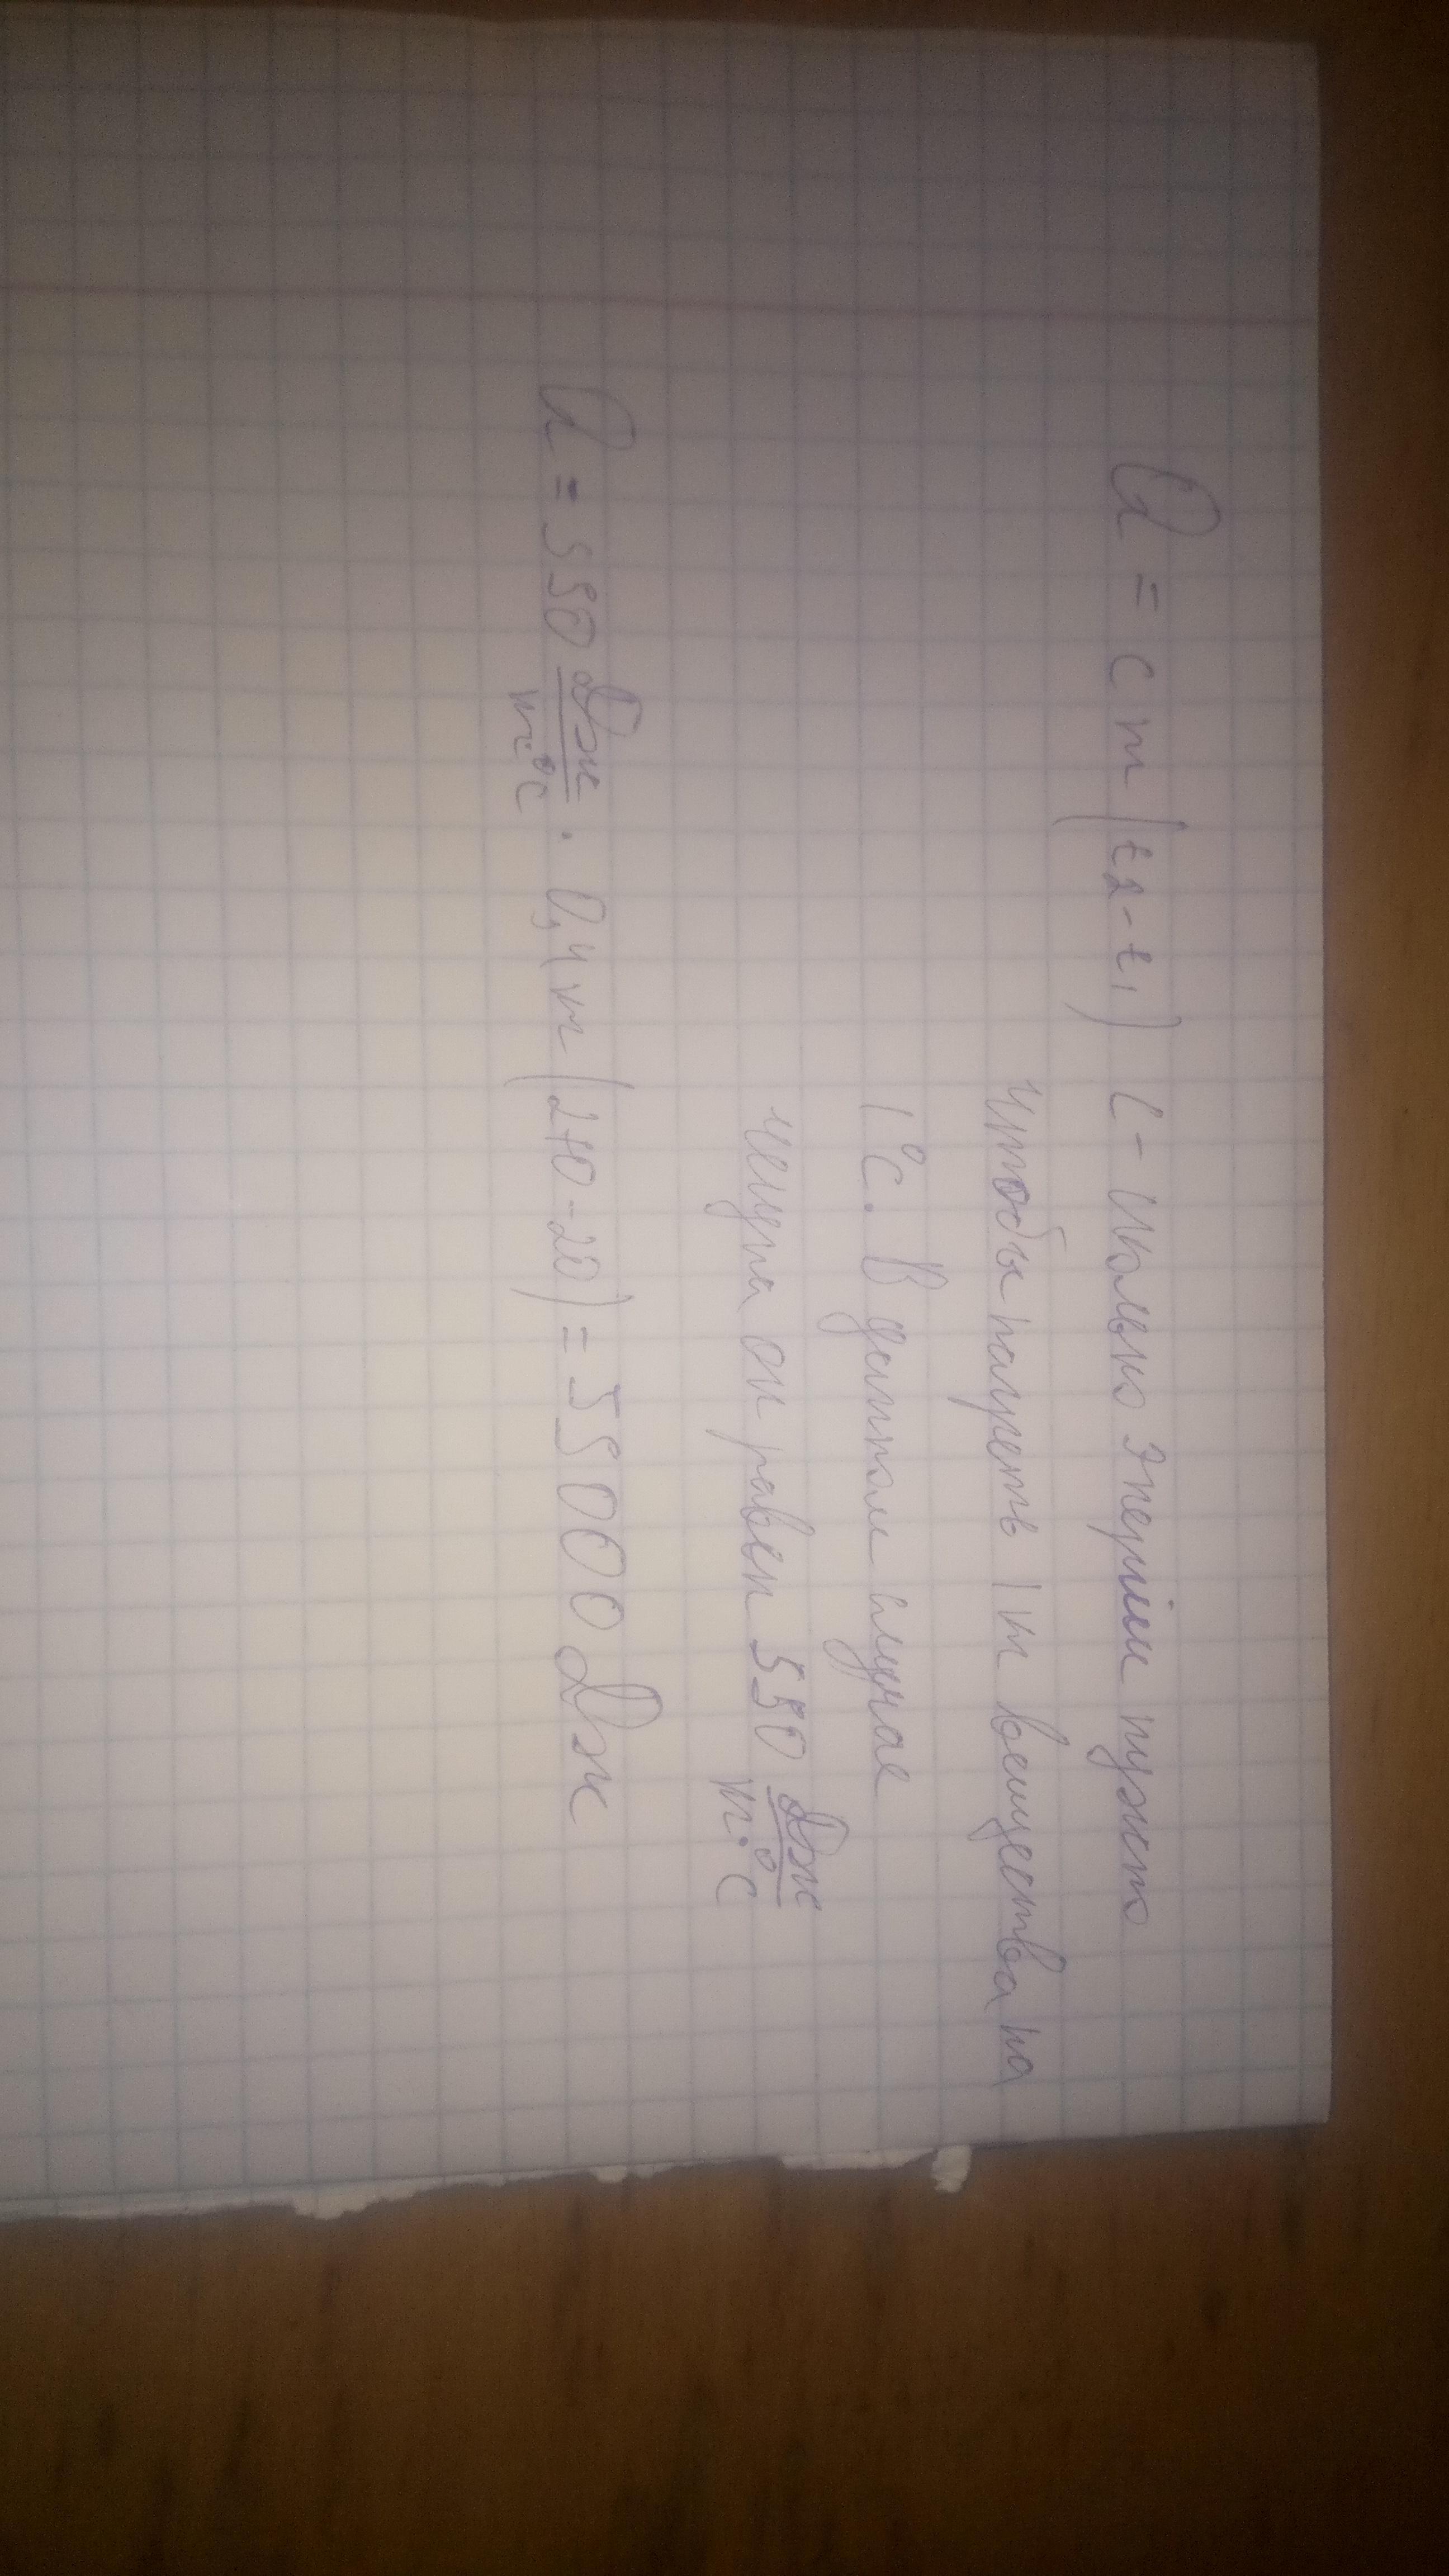 Q = c m (t2 - t1) с - сколько энергии нужно
чтобы нагреть 1 т вещества на
1°C. В данном случае
чугуна он равен 550 Дж/т·°C
Q = 550 Дж/т°C · 0,4 т (270 - 20) = 55000 Дж